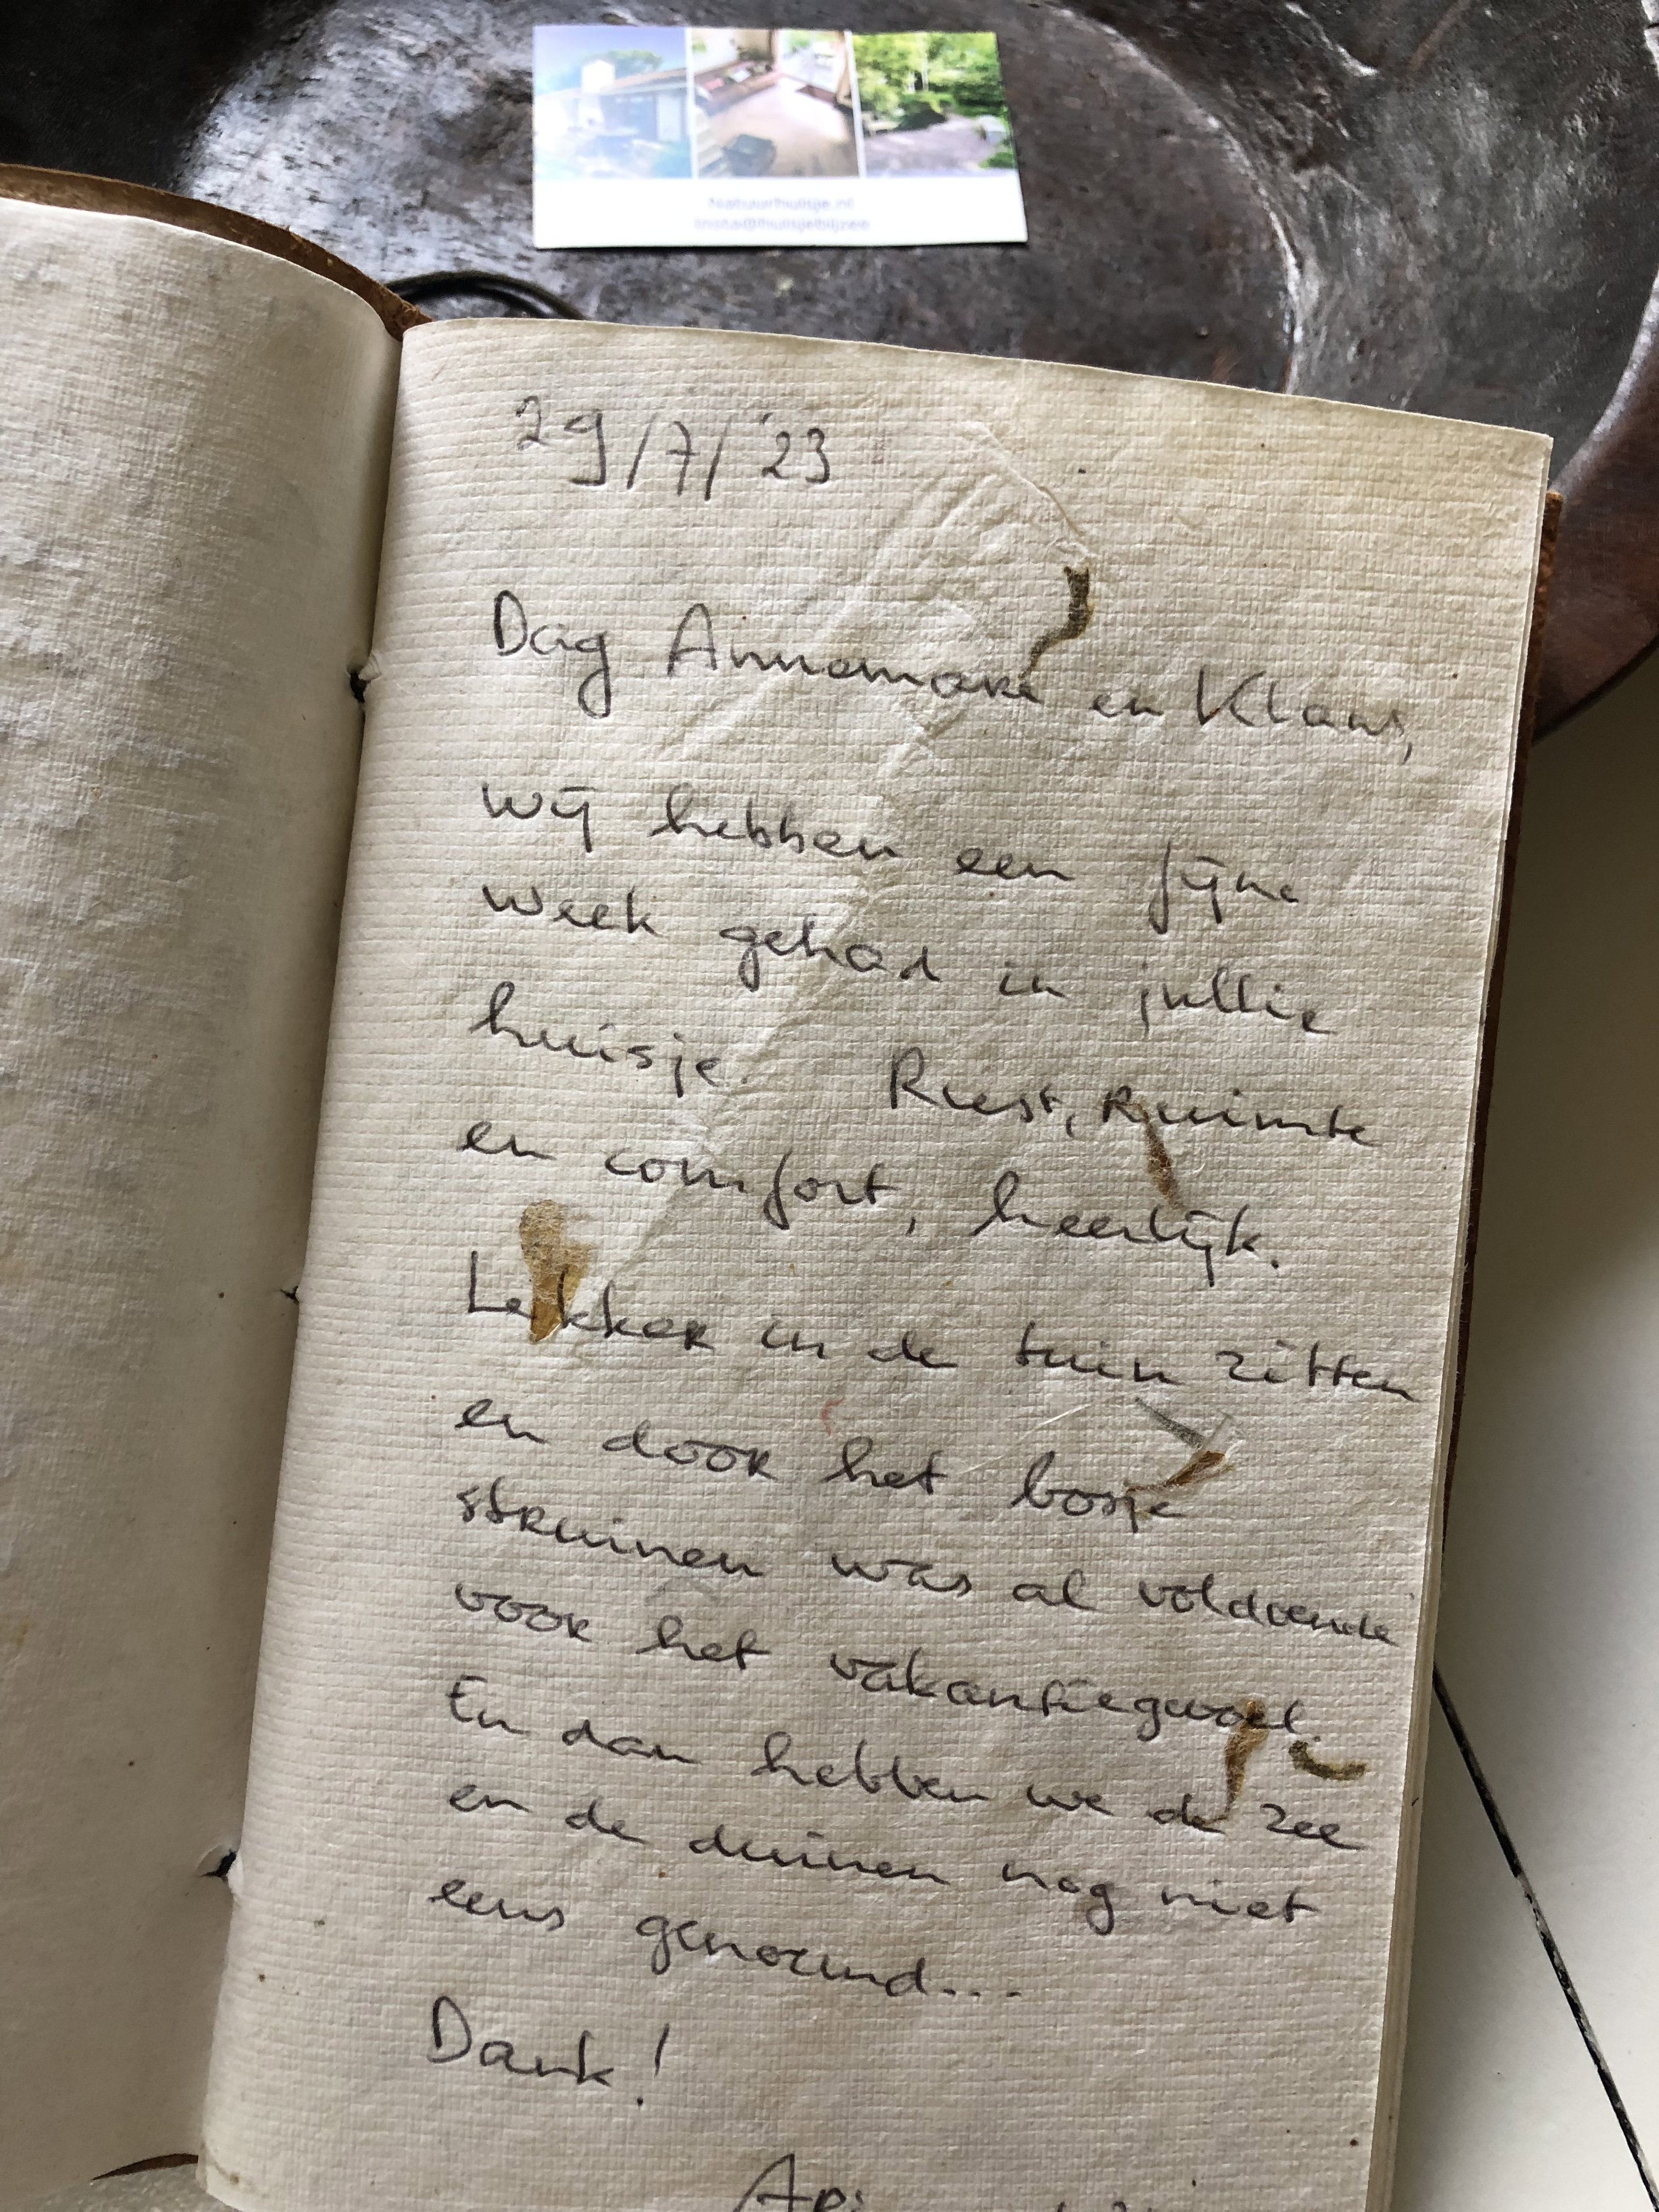 Natuurhuisje.nl
Insta@huisjebijzee
29/7/'23
Dag Annemarie en Klaas,
wij hebben een fijne
week gehad in jullie
huisje. Rust, Ruimte
en comfort, heerlijk.
Lekker in de tuin zitten
en door het bosje
struinen was al voldoende
voor het vakantiegevoel.
En dan hebben we de zee
en de duinen nog niet
eens genoemd...
Dank!